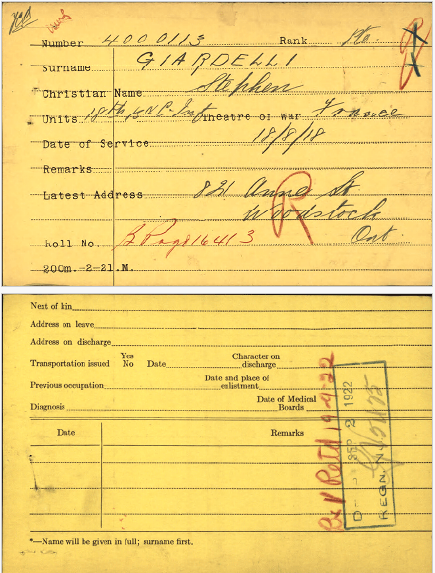 Number 4000113 Rank Pte.
Surname GIARDELLI
Christian Name Stephen
Units 18th, Inf Theatre of War France
Date of Service 18/8/18
Remarks
Latest Address 821 Anne St
Woodstock
Ont.
R
Roll No. B Page 16413
200m.-2-21.M.
Next of kin
Address on leave
Address on discharge
Transportation issued Yes No Date Character on discharge
Previous occupation Date and place of enlistment
Diagnosis Date of Medical Boards
Date Remarks
B&V Retd 19-9-22
SEP 2 1922
REGN. No.
*—Name will be given in full; surname first.